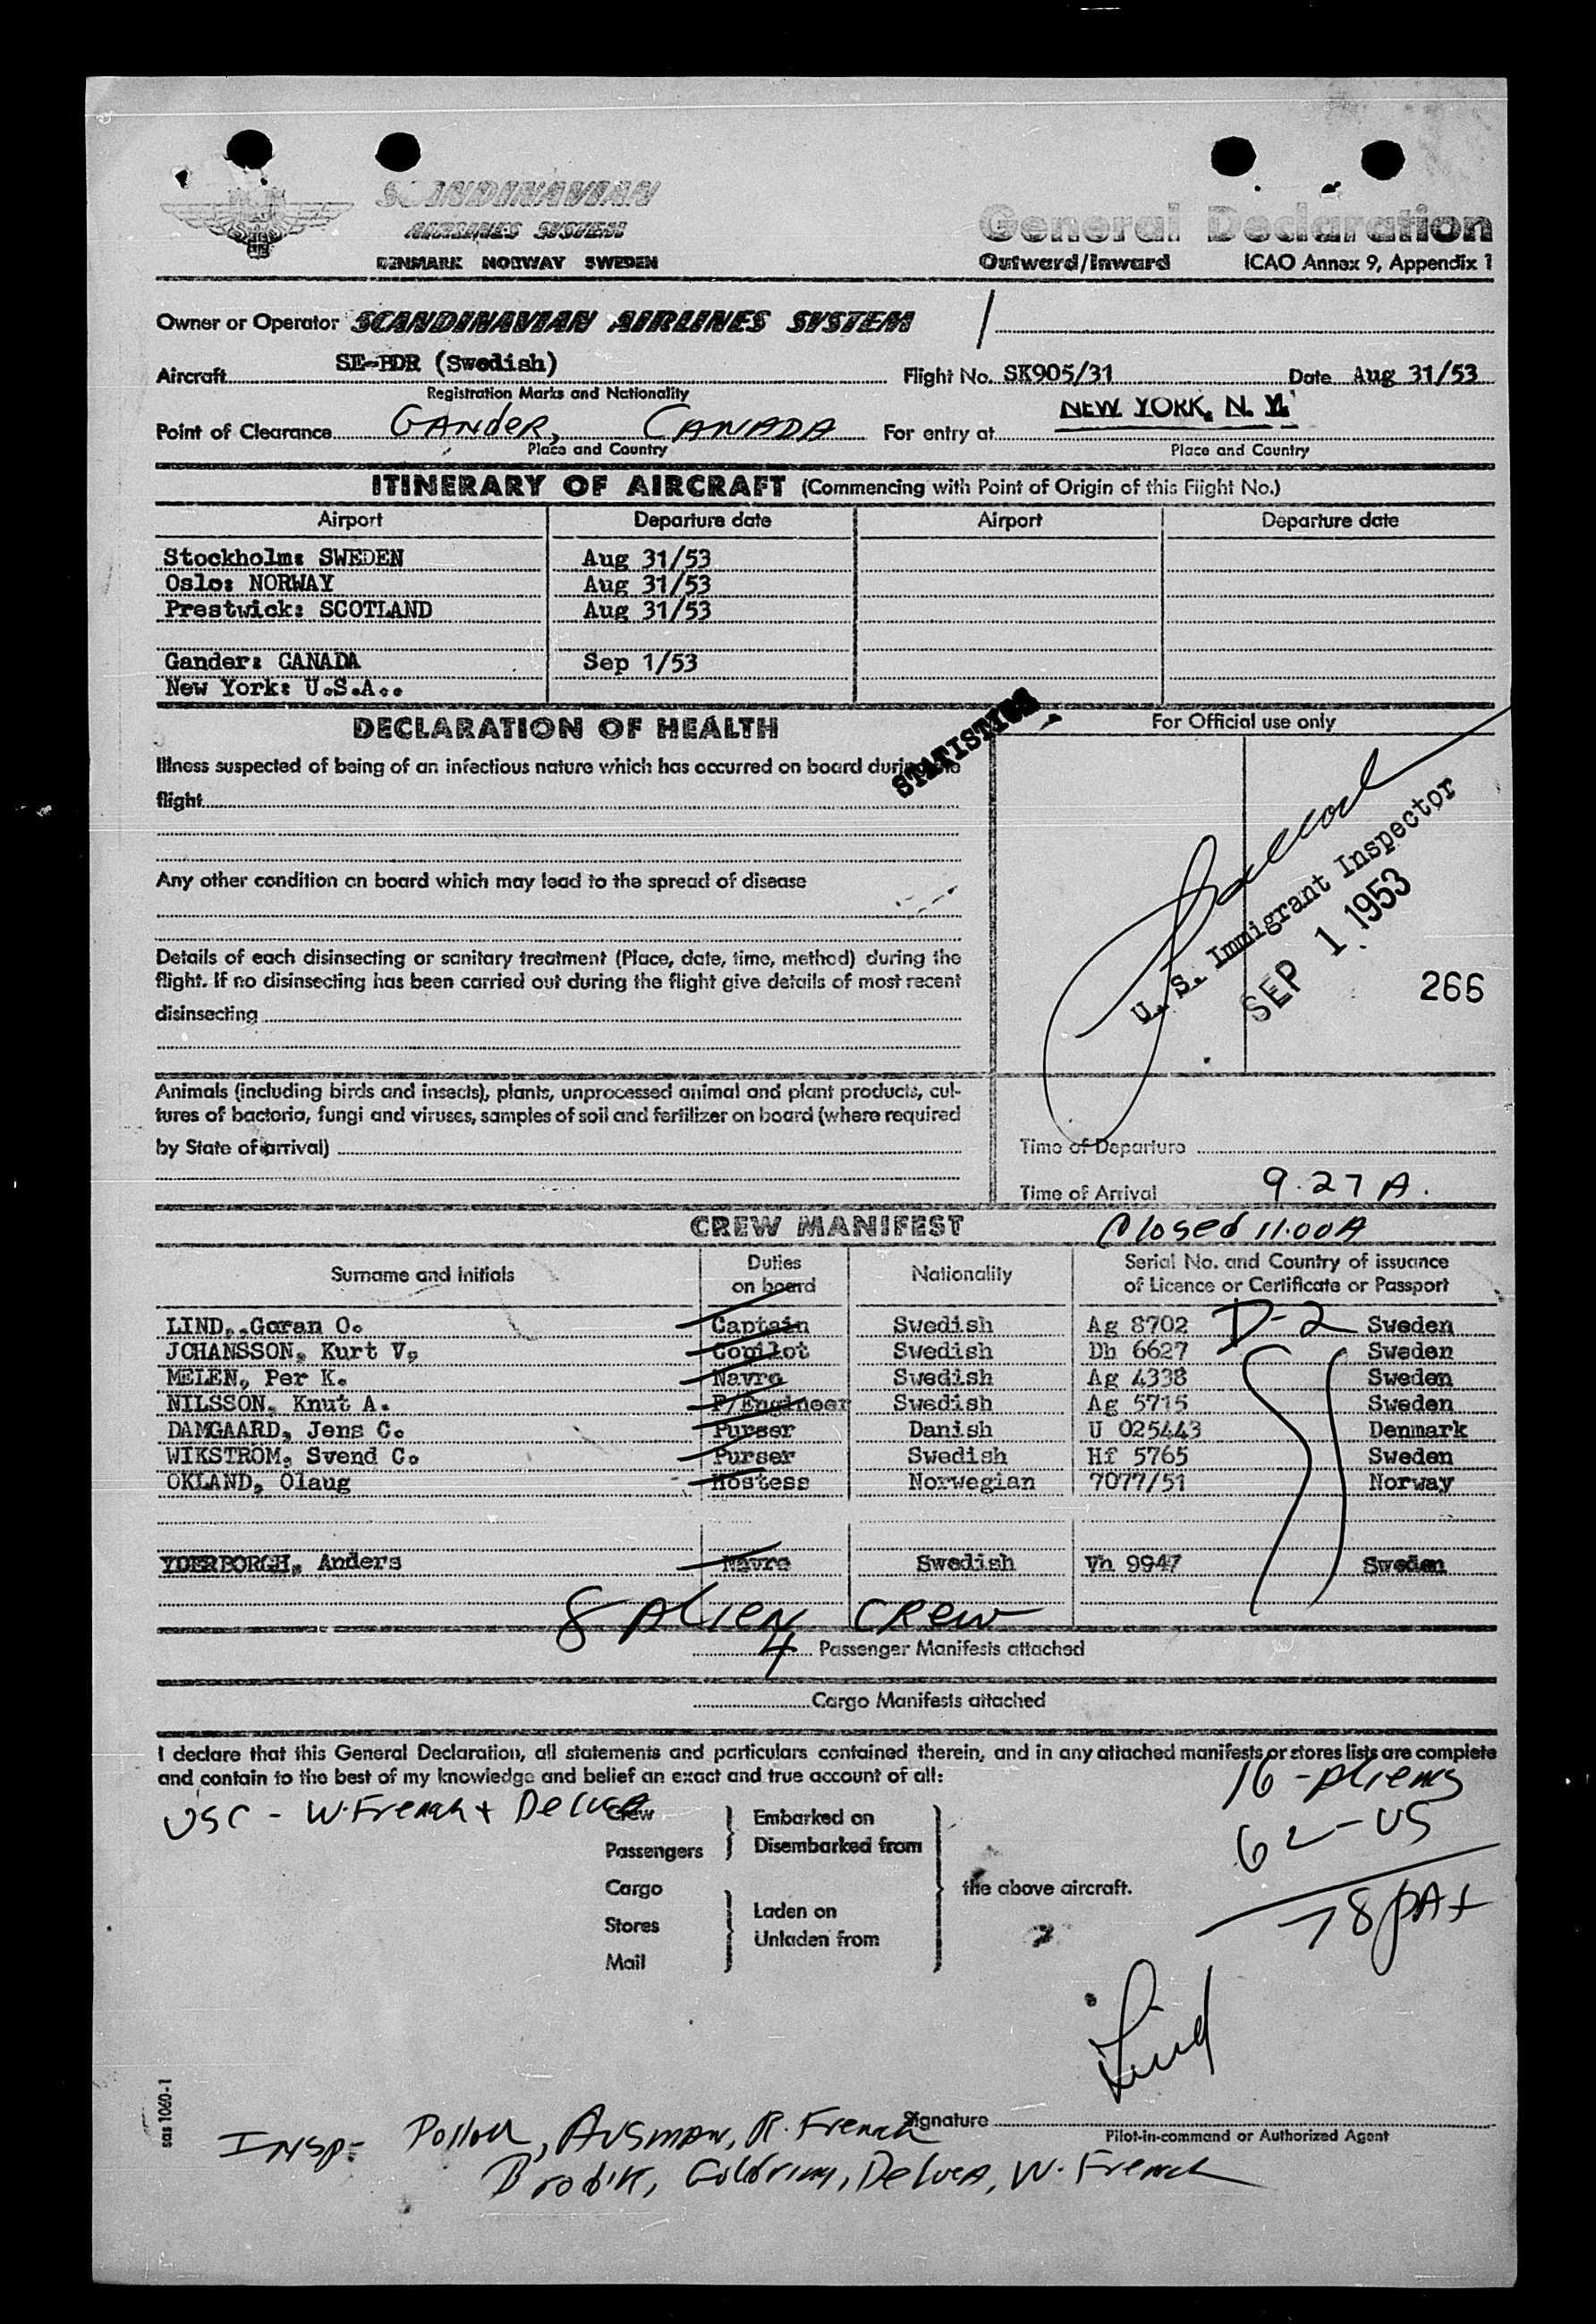 SCANDINAVIAN
AIRLINES SYSTEM
DENMARK NORWAY SWEDEN
General Declaration
Outward/Inward ICAO Annex 9, Appendix 1
Owner or Operator SCANDINAVIAN AIRLINES SYSTEM
Aircraft SE-BDR (Swedish) Flight No. SK905/31 Date Aug 31/53
Registration Marks and Nationality
Point of Clearance GANDER, CANADA For entry at NEW YORK, N. Y.
Place and Country Place and Country
ITINERARY OF AIRCRAFT (Commencing with Point of Origin of this Flight No.)
Airport Departure date Airport Departure date
Stockholm: SWEDEN Aug 31/53
Oslo: NORWAY Aug 31/53
Prestwick: SCOTLAND Aug 31/53
Gander: CANADA Sep 1/53
New York: U.S.A..
DECLARATION OF HEALTH
STATISTICS
For Official use only
Illness suspected of being of an infectious nature which has occurred on board during the
flight
Any other condition on board which may lead to the spread of disease
Details of each disinsecting or sanitary treatment (Place, date, time, method) during the
flight. If no disinsecting has been carried out during the flight give details of most recent
disinsecting
U. S. Immigrant Inspector
SEP 1 1953
266
Animals (including birds and insects), plants, unprocessed animal and plant products, cul-
tures of bacteria, fungi and viruses, samples of soil and fertilizer on board (where required
by State of arrival)
Time of Departure
Time of Arrival 9.27 A.
CREW MANIFEST Closed 11.00A
Surname and initials Duties on board Nationality Serial No. and Country of issuance of Licence or Certificate or Passport
LIND,.Goran O. Captain Swedish Ag 8702 D-2 Sweden
JOHANSSON, Kurt V. Copilot Swedish Dh 6627 Sweden
MELEN, Per K. Navro Swedish Ag 4338 Sweden
NILSSON, Knut A. F/Engineer Swedish Ag 5715 Sweden
DAMGAARD, Jens C. Purser Danish U 025443 Denmark
WIKSTROM, Svend G. Purser Swedish Hf 5765 Sweden
OKLAND, Olaug Hostess Norwegian 7077/51 Norway
YDERBORGH, Anders Navro Swedish Vh 9947 Sweden
8 ALIEN CREW
4 Passenger Manifests attached
Cargo Manifests attached
I declare that this General Declaration, all statements and particulars contained therein, and in any attached manifests or stores lists are complete
and contain to the best of my knowledge and belief an exact and true account of all:
16 - Aliens
USC - W. French + DeLuca
62 - US
78 PAX
Crew Embarked on
Passengers Disembarked from
Cargo the above aircraft.
Laden on
Stores
Unladen from
Mail
Lind
Signature
Pilot-in-command or Authorized Agent
sas 1060-1
INSP- Pollock, Ausman, R. French
Brodik, Goldring, DeLuca, W. French